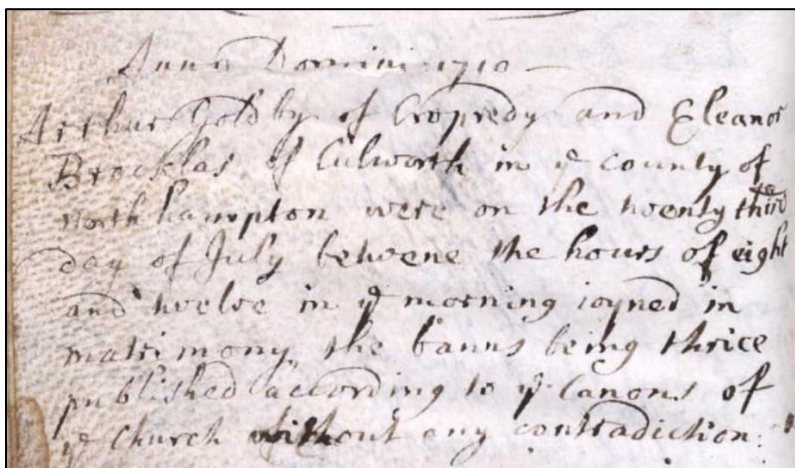 Anno Domini 1710
Arthur Goldby of Cropredy and Eleanor
Brocklas of Culworth in ye county of
north hampton were on the twenty third
day of July betwene the hours of eight
and twelve in ye morning ioyned in
matrimony, the banns being thrice
published according to ye Canons of
ye Church without any contradiction: